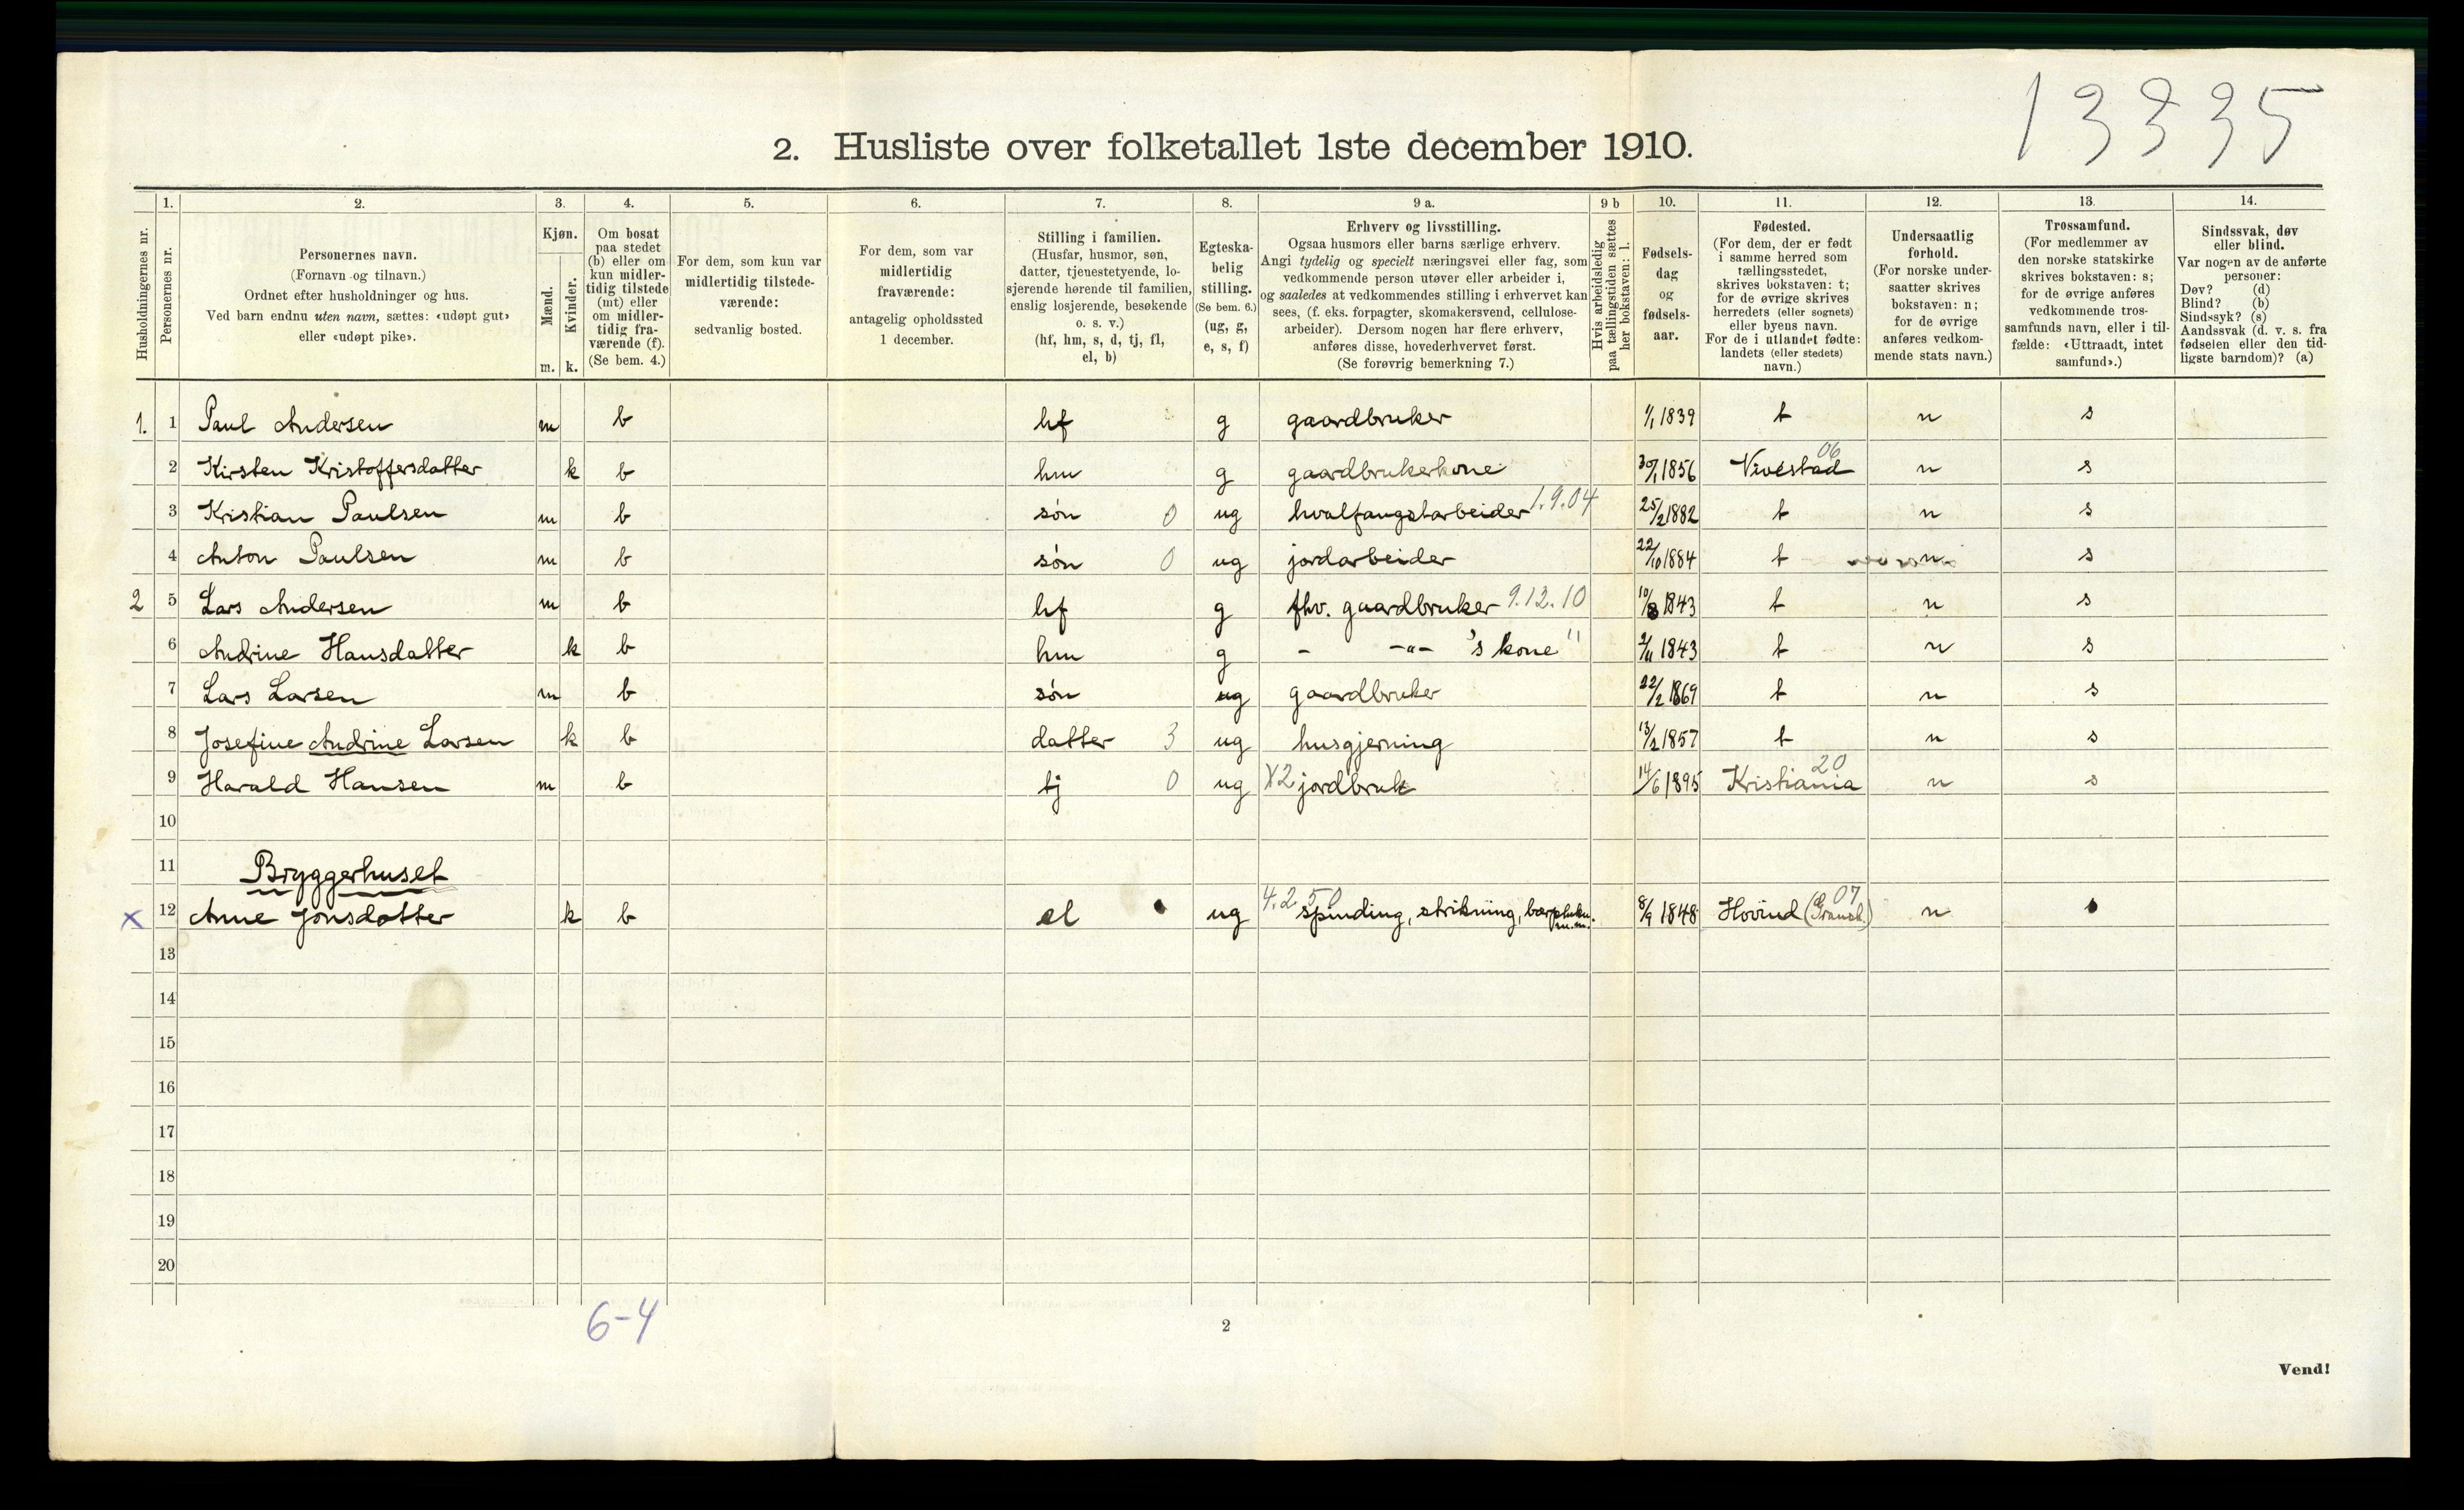 13335
2. Husliste over folketallet 1ste december 1910.
Husholdningernes nr.
1.
Personernes nr.
2.
Personernes navn.
(Fornavn og tilnavn.)
Ordnet efter husholdninger og hus.
Ved barn endnu uten navn, sættes: «udøpt gut»
eller «udøpt pike».
3.
Kjøn.
Mænd.
Kvinder.
m. k.
4.
Om bosat
paa stedet
(b) eller om
kun midler-
tidig tilstede
(mt) eller
om midler-
tidig fra-
værende (f).
(Se bem. 4.)
5.
For dem, som kun var
midlertidig tilstede-
værende:
sedvanlig bosted.
6.
For dem, som var
midlertidig
fraværende:
antagelig opholdssted
1 december.
7.
Stilling i familien.
(Husfar, husmor, søn,
datter, tjenestetyende, lo-
sjerende hørende til familien,
enslig losjerende, besøkende
o. s. v.)
(hf, hm, s, d, tj, fl,
el, b)
8.
Egteska-
belig
stilling.
(Se bem. 6.)
(ug, g,
e, s, f)
9 a.
Erhverv og livsstilling.
Ogsaa husmors eller barns særlige erhverv.
Angi tydelig og specielt næringsvei eller fag, som
vedkommende person utøver eller arbeider i,
og saaledes at vedkommendes stilling i erhvervet kan
sees, (f. eks. forpagter, skomakersvend, cellulose-
arbeider). Dersom nogen har flere erhverv,
anføres disse, hovederhvervet først.
(Se forøvrig bemerkning 7.)
9 b
Hvis arbeidsledig
paa tællingstiden sættes
her bokstaven: l.
10.
Fødsels-
dag
og
fødsels-
aar.
11.
Fødested.
(For dem, der er født
i samme herred som
tællingsstedet,
skrives bokstaven: t;
for de øvrige skrives
herredets (eller sognets)
eller byens navn.
For de i utlandet fødte:
landets (eller stedets)
navn.)
12.
Undersaatlig
forhold.
(For norske under-
saatter skrives
bokstaven: n;
for de øvrige
anføres vedkom-
mende stats navn.)
13.
Trossamfund.
(For medlemmer av
den norske statskirke
skrives bokstaven: s;
for de øvrige anføres
vedkommende tros-
samfunds navn, eller i til-
fælde: «Uttraadt, intet
samfund».)
14.
Sindssvak, døv
eller blind.
Var nogen av de anførte
personer:
Døv? (d)
Blind? (b)
Sindssyk? (s)
Aandssvak (d. v. s. fra
fødselen eller den tid-
ligste barndom)? (a)
1. 1 Paul Andersen m b hf g gaardbruker 1/1 1839 t n s
2 Kirsten Kristoffersdatter k b hm g gaardbrukerkone 30/1 1856 Vivestad 06 n s
3 Kristian Paulsen m b søn 0 ug hvalfangstarbeider 1.9.04 25/2 1882 t n s
4 Anton Paulsen m b søn 0 ug jordarbeider 22/10 1884 t n s
2 5 Lars Andersen m b hf g fhv. gaardbruker 9.12.10 10/8 1843 t n s
6 Andrine Hansdatter k b hm g - -"- 's kone " 2/11 1843 t n s
7 Lars Larsen m b søn ug gaardbruker 22/2 1869 t n s
8 Josefine Andrine Larsen k b datter 3 ug husgjerning 13/2 1857 t n s
9 Harald Hansen m b tj 0 ug X2 jordbruk 14/6 1895 Kristiania 20 n s
10
11 Bryggerhuset
x 12 Anne Jonsdatter k b el ug 4.2 50 spinding, strikning, bærplukn. m.m. 8/9 1848 Hovind (Gransh.) 07 n s
13
14
15
16
17
18
19
20
6-4
2
Vend!